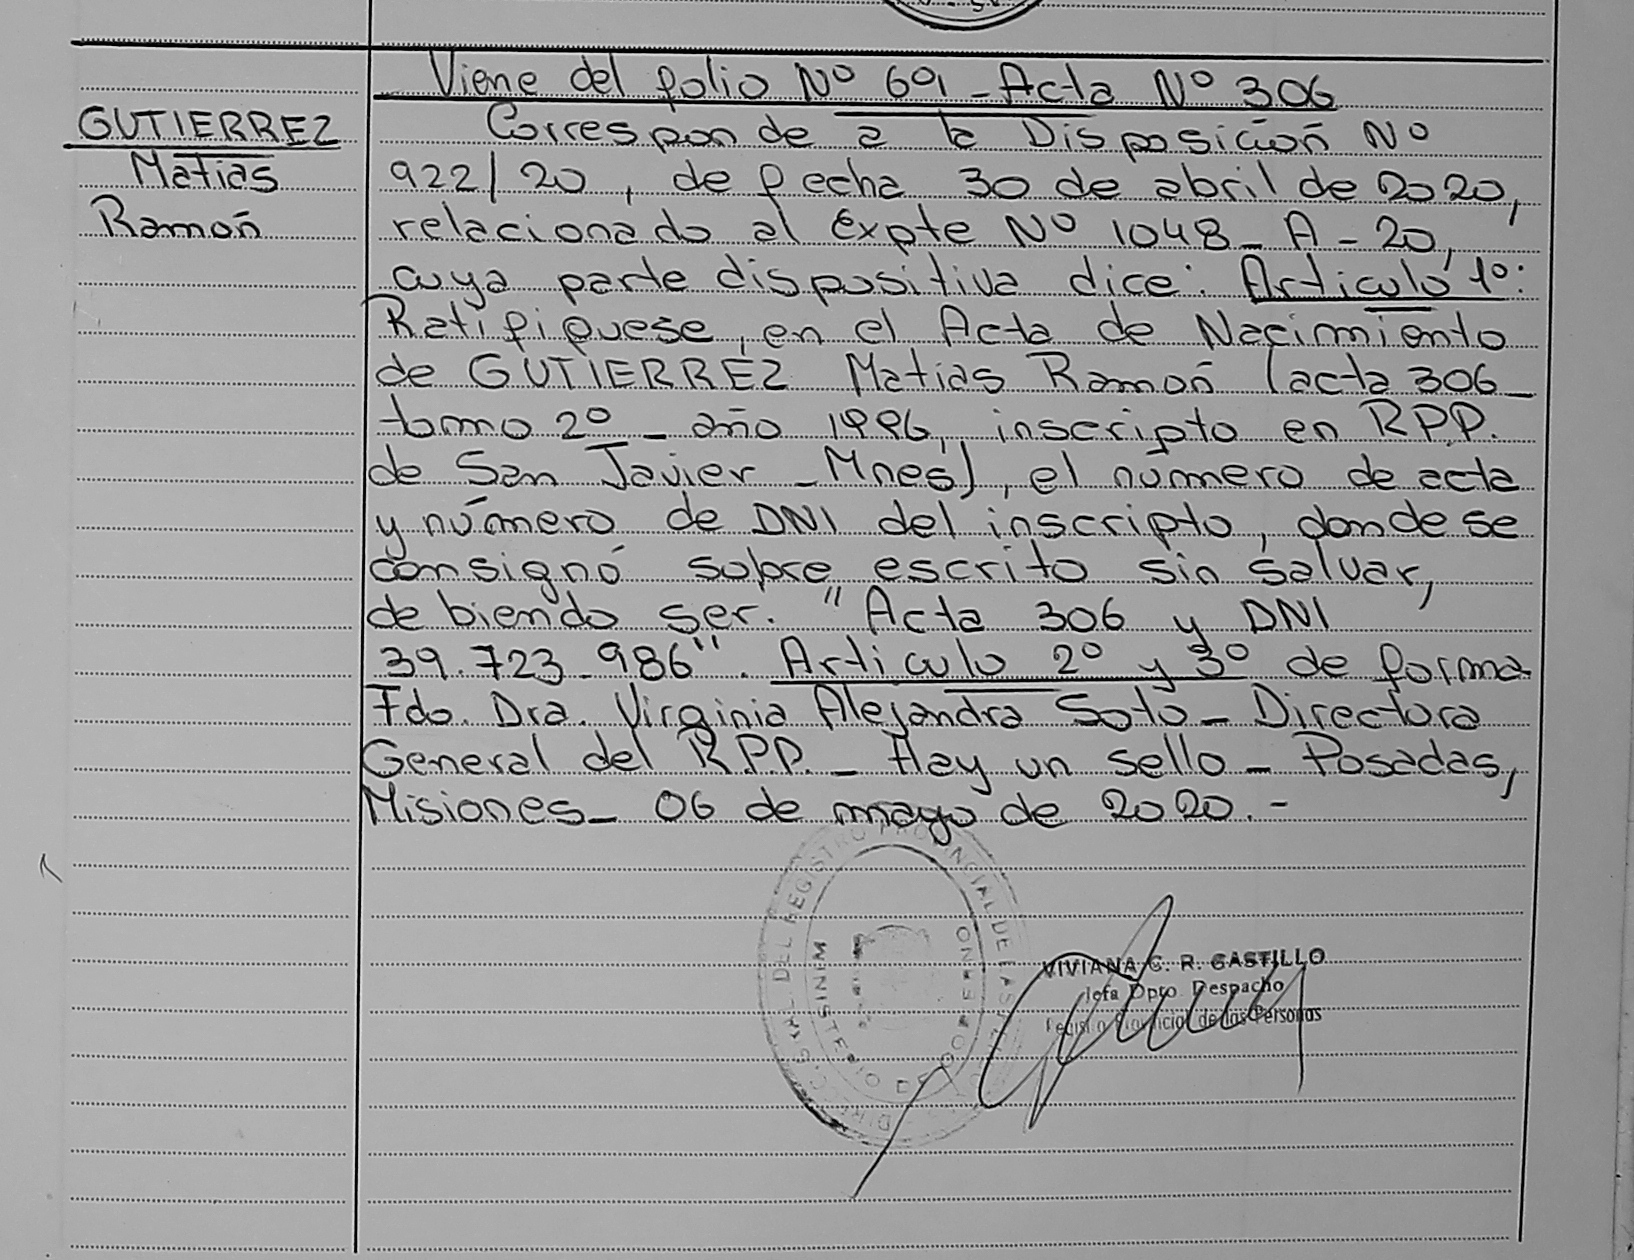 Viene del folio Nº 691 - Acta Nº 306
GUTIERREZ
Matias
Ramón
Corresponde a la Disposición Nº
922/20, de fecha 30 de abril de 2020,
relacionado al Expte Nº 1048 - A - 20,
cuya parte dispositiva dice: Articulo 1º:
Ratifiquese, en el Acta de Nacimiento
de GUTIERREZ Matias Ramón (acta 306 -
tomo 2º - año 1996, inscripto en R.P.P.
de San Javier - Mnes), el número de acta
y número de DNI del inscripto, donde se
consignó sobre escrito sin salvar,
debiendo ser. "Acta 306 y DNI
39.723.986". Articulo 2º y 3º de forma
Fdo. Dra. Virginia Alejandra Soto - Directora
General del R.P.P. - Hay un sello - Posadas,
Misiones - 06 de mayo de 2020.-
VIVIANA G. R. CASTILLO
Jefa Dpto. Despacho
Registro Provincial de las Personas